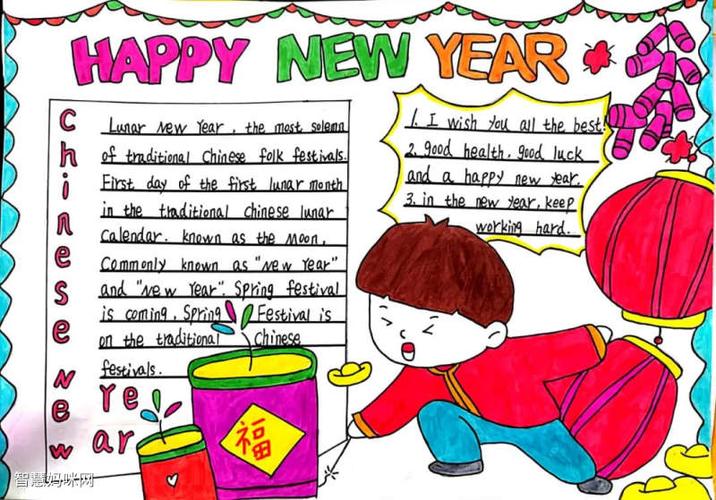 HAPPY NEW YEAR
Chinese New
Year
Lunar New Year, the most solemn
of traditional Chinese folk festivals.
First day of the first lunar month
in the traditional Chinese lunar
Calendar. known as the Moon,
Commonly known as "new Year"
and "New Year". Spring festival
is coming. Spring Festival is
on the traditional Chinese
festivals.
1. I wish you all the best.
2. good health. good luck
and a happy new year.
3. in the new year, keep
working hard.
福
智慧妈咪网